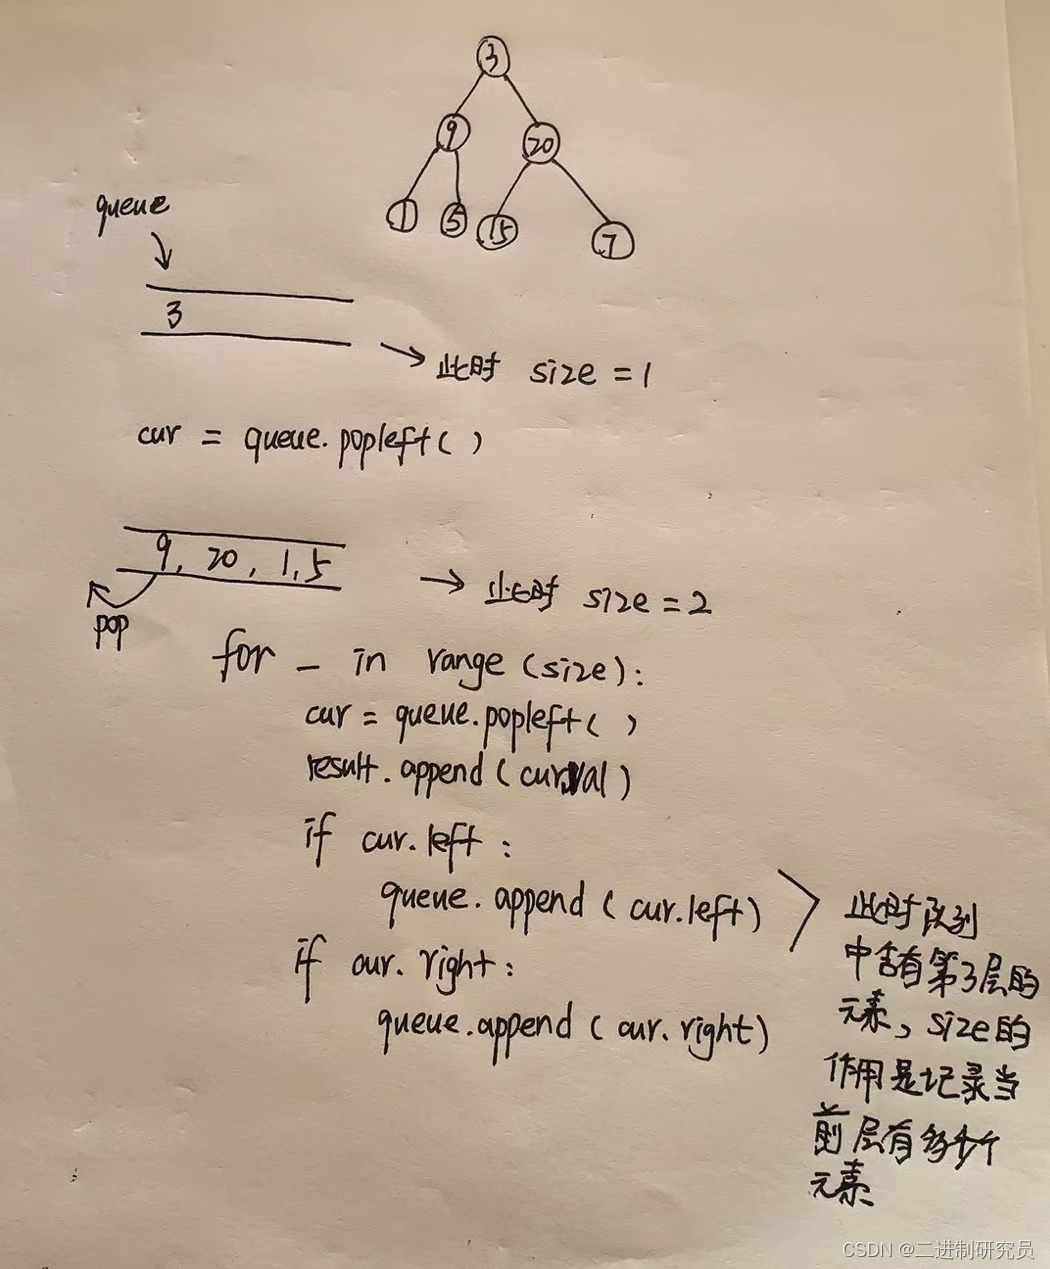 3
9
20
1
5
15
7
queue
3
此时 size = 1
cur = queue.popleft( )
9, 20, 1, 5
此时 size = 2
pop
for _ in range (size):
cur = queue.popleft( )
result.append (cur.val)
if cur.left :
queue. append ( cur.left)
if cur. right :
queue.append ( cur. right)
此时队列
中含有第3层的
元素, size的
作用是记录当
前层有多少个
元素
CSDN @二进制研究员